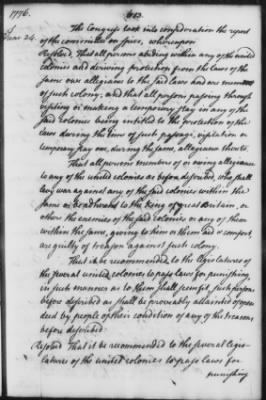 1776. 613.
June 24. The Congress took into consideration the report
of the committee on spies, whereupon
Resolved, That all persons abiding within any of the united
colonies and deriving protection from the laws of the
same owe allegiance to the said laws and are members
of such colony; and that all persons passing through
visiting or making a temporary stay in any of the
said colonies being entitled to the protection of the
laws during the time of such passage, visitation or
temporary stay owe, during the same, allegiance thereto.
That all persons members of or owing allegiance
to any of the united colonies as before described, who shall
levy war against any of the said colonies within the
same or be adherent to the king of great Britain, or
other the enemies of the said colonies or any of them
within the same, giving to him or them aid & comfort,
are guilty of treason against such colony.
That it be recommended to the legislatures of
the several united colonies to pass laws for punishing,
in such manner as to them shall seem fit, such persons
before described as shall be proveably attainted of open
deed by people of their condition of any of the treasons
before described.
Resolved That it be recommended to the several legis-
latures of the united colonies to pass laws for
punishing